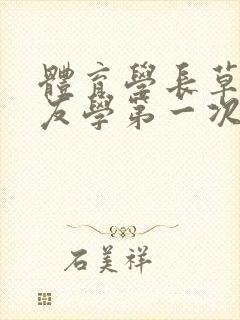 體育學長草
友學第一次
石美祥